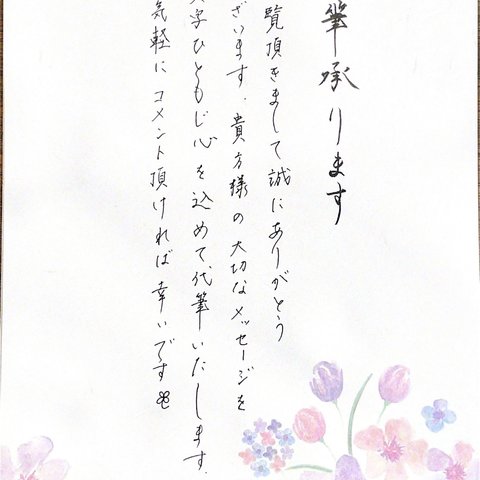 筆承ります
覧頂きまして誠にありがとう
ざいます。貴方様の大切なメッセージを
字ひともじ心を込めて代筆いたします。
気軽にコメント頂ければ幸いです